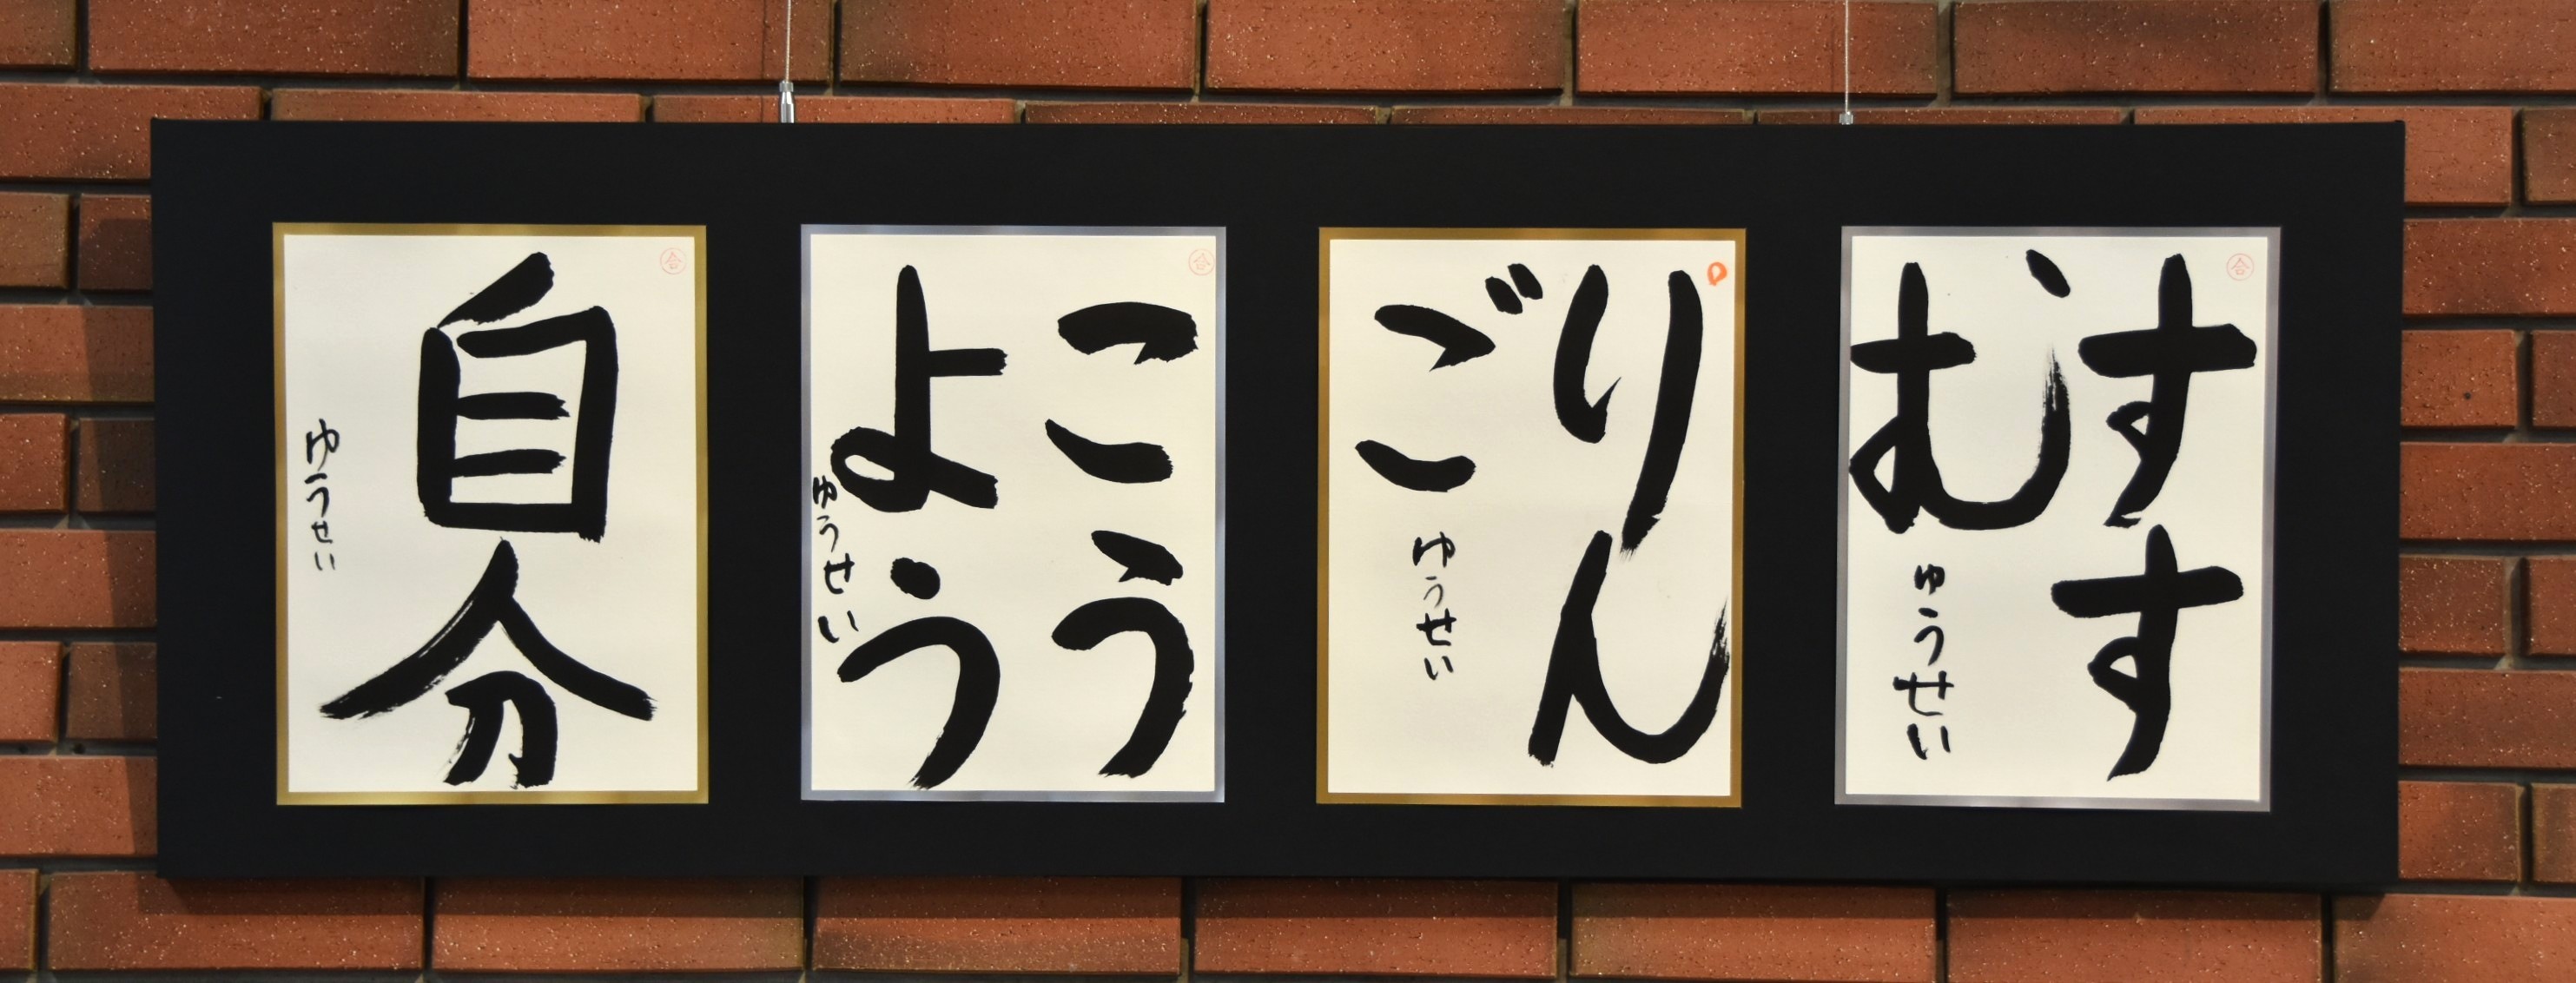 すす
む
ゆうせい
りん
ご
ゆうせい
こう
よう
ゆうせい
自分
ゆうせい
合
合
合